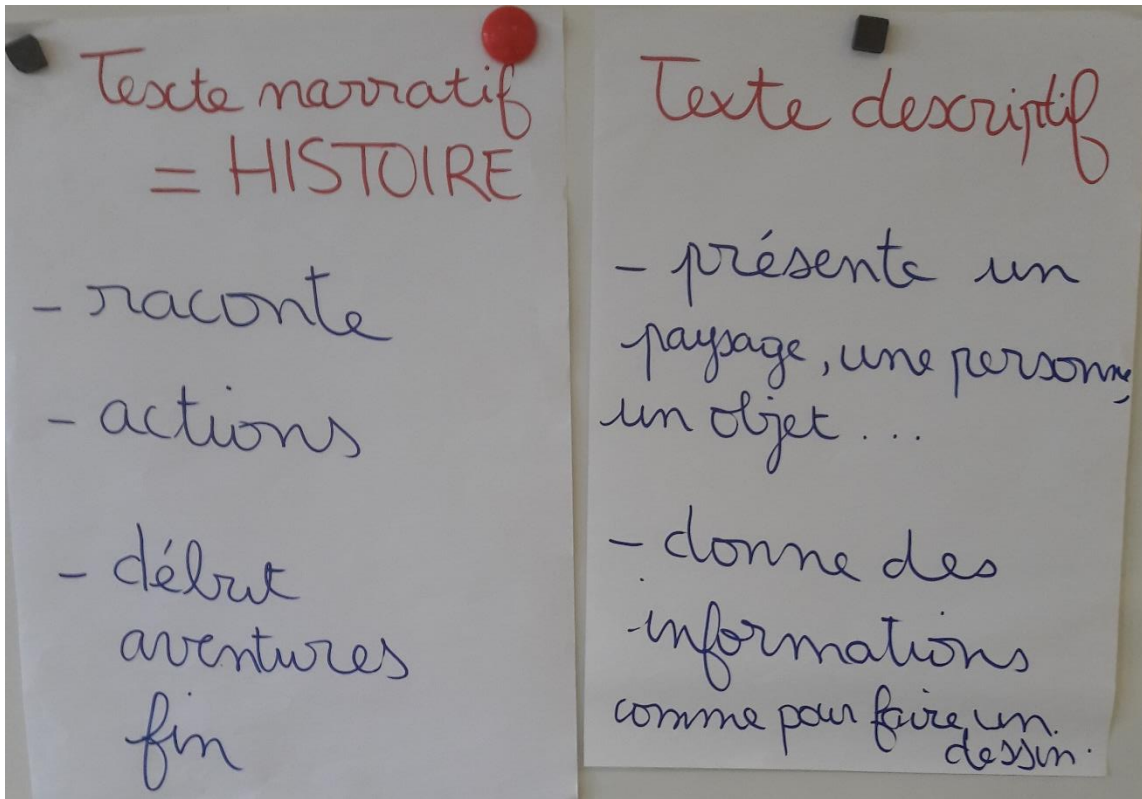 Texte narratif
= HISTOIRE
- raconte
- actions
- début
aventures
fin
Texte descriptif
- présente un
paysage, une personne,
un objet ...
- donne des
informations
comme pour faire un
dessin.